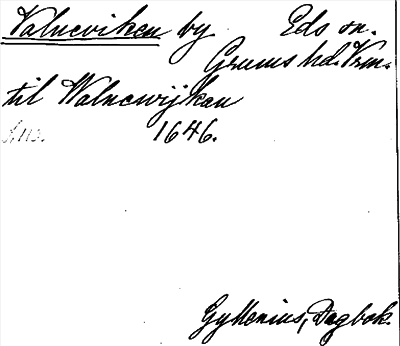 Valneviken by Eds sn.
Grums hd. Vrm.
til Walnewijkan
s. 113. 1646.
Gyllenius, Dagbok.